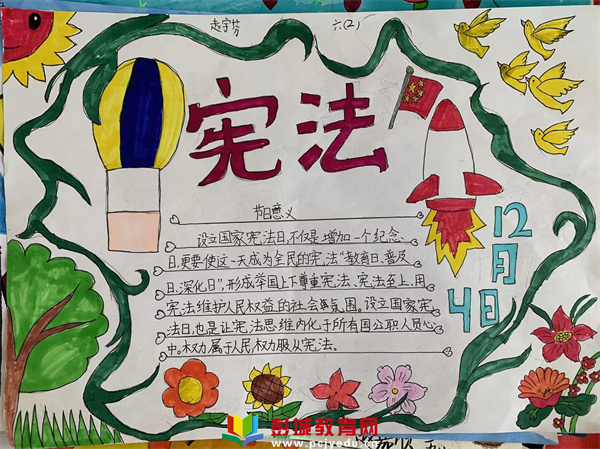 赵宇芳 六(2)
宪法
节日意义
设立国家宪法日,不仅是增加一个纪念
日,更要使这一天成为全民的宪法“教育日、普及
日、深化日”,形成举国上下尊重宪法、宪法至上、用
宪法维护人民权益的社会氛围。设立国家宪
法日,也是让宪法思维内化于所有国公职人员心
中。权力属于人民,权力服从宪法。
12
月
4日
彭城教育网
www.pcjyedu.cn